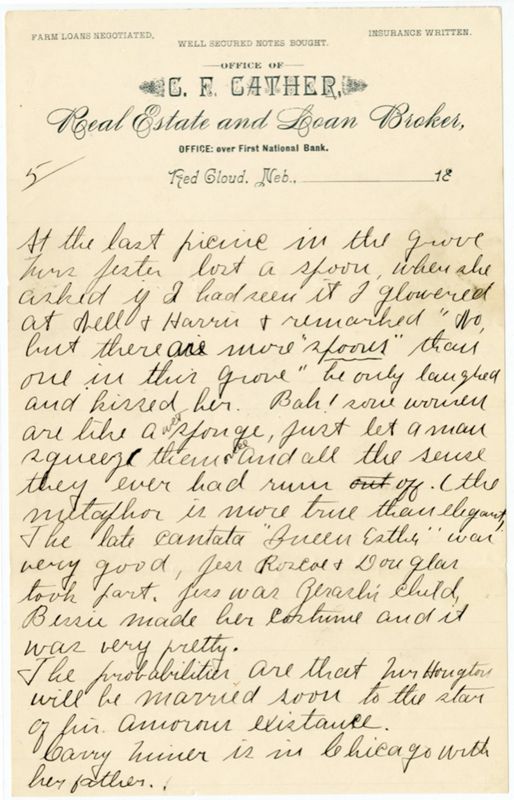 FARM LOANS NEGOTIATED. WELL SECURED NOTES BOUGHT. INSURANCE WRITTEN.
OFFICE OF
C. F. CATHER,
Real Estate and Loan Broker,
OFFICE: over First National Bank.
5 Red Cloud, Neb., 18
At the last picinc in the grove
Mrs Jester lost a spoon, when she
asked if I had seen it I glowered
at Nell & Harris & remarked "No,
but there are more "spoons" than
one in this grove" he only laughed
and kissed her. Bah! some women
are like a wet sponge, just let a man
squeeze them and all the sense
they ever had runs out off. (the
metaphor is more true than elegant,
The late cantata "Queen Esther" was
very good, Jess Roscoe & Douglas
took part. Jess was Zerash's child,
Bessie made her costume and it
was very pretty.
The probabilities are that Mr Hougton
will be married soon to the star
of his amorous existance.
Carry Miner is in Chicago with
her father.